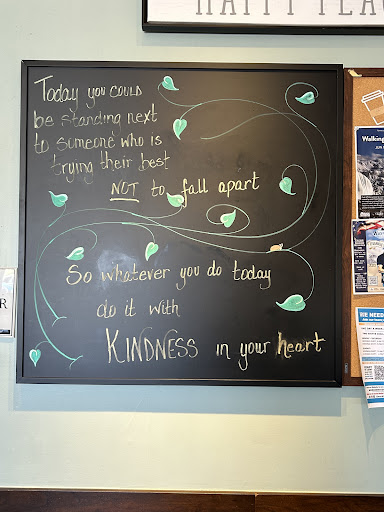 HAPPY PLACE
Today you COULD
be standing next
to someone who is
trying their best
NOT to fall apart
So whatever you do today
do it with
KINDNESS in your heart
Walking